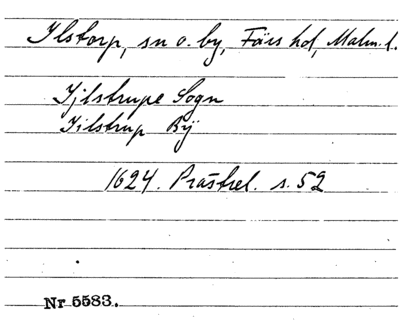 Ilstorp, sn o. by, Färs hd, Malm. l.
Ijlstrupe Sogn
Iilstrup Bÿ
1624. Prästrel. s. 52
Nr 5583.